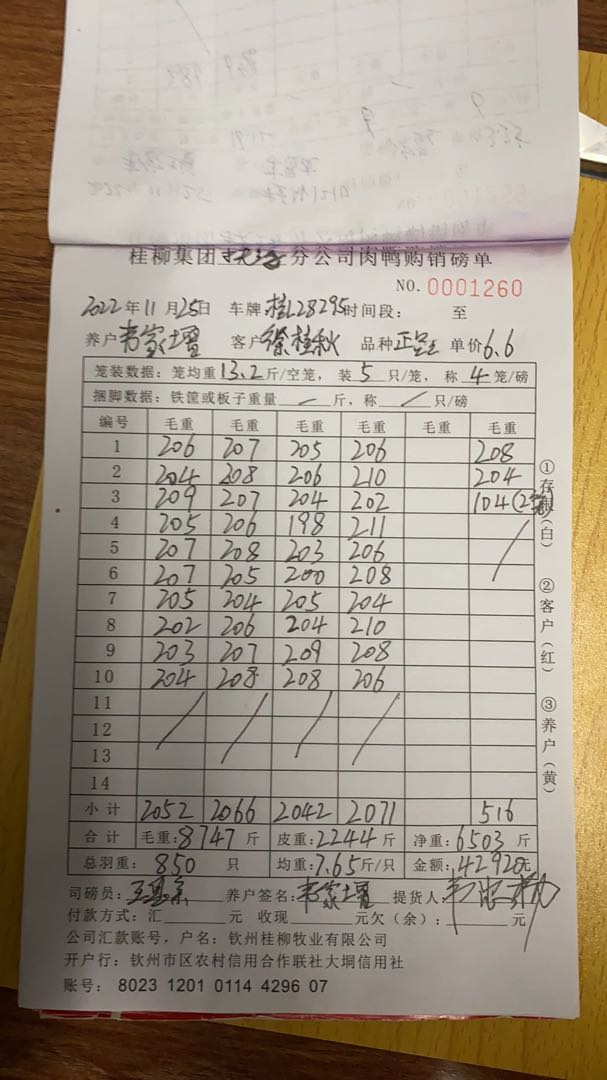 桂柳集团 分公司肉鸭购销磅单
NO. 0001260
2022年11月25日 车牌:桂L28295 时间段: 至
养户 韦家增 客户 徐桂秋 品种 单价 6.6
笼装数据: 笼均重 13.2 斤/空笼, 装 5 只/笼, 称 4 笼/磅
捆脚数据: 铁筐或板子重量 — 斤, 称 / 只/磅
编号 毛重 毛重 毛重 毛重 毛重 毛重
1 206 207 205 206 208
2 204 208 206 210 204
3 209 207 204 202 104(2笼)
4 205 206 198 211
5 207 208 203 206
6 207 205 200 208
7 205 204 205 204
8 202 206 204 210
9 203 207 209 208
10 204 208 208 206
11
12
13
14
小计 2052 2066 2042 2071 516
合计 毛重:8747斤 皮重:2244斤 净重:6503斤
总羽重: 850 只 均重:7.65斤/只 金额:42920元
司磅员: 养户签名: 韦家增 提货人:
付款方式: 汇 元 收现 元欠(余): 元
公司汇款账号, 户名: 钦州桂柳牧业有限公司
开户行: 钦州市区农村信用合作联社大垌信用社
账号: 8023 1201 0114 4296 07
①存根(白)
②客户(红)
③养户(黄)